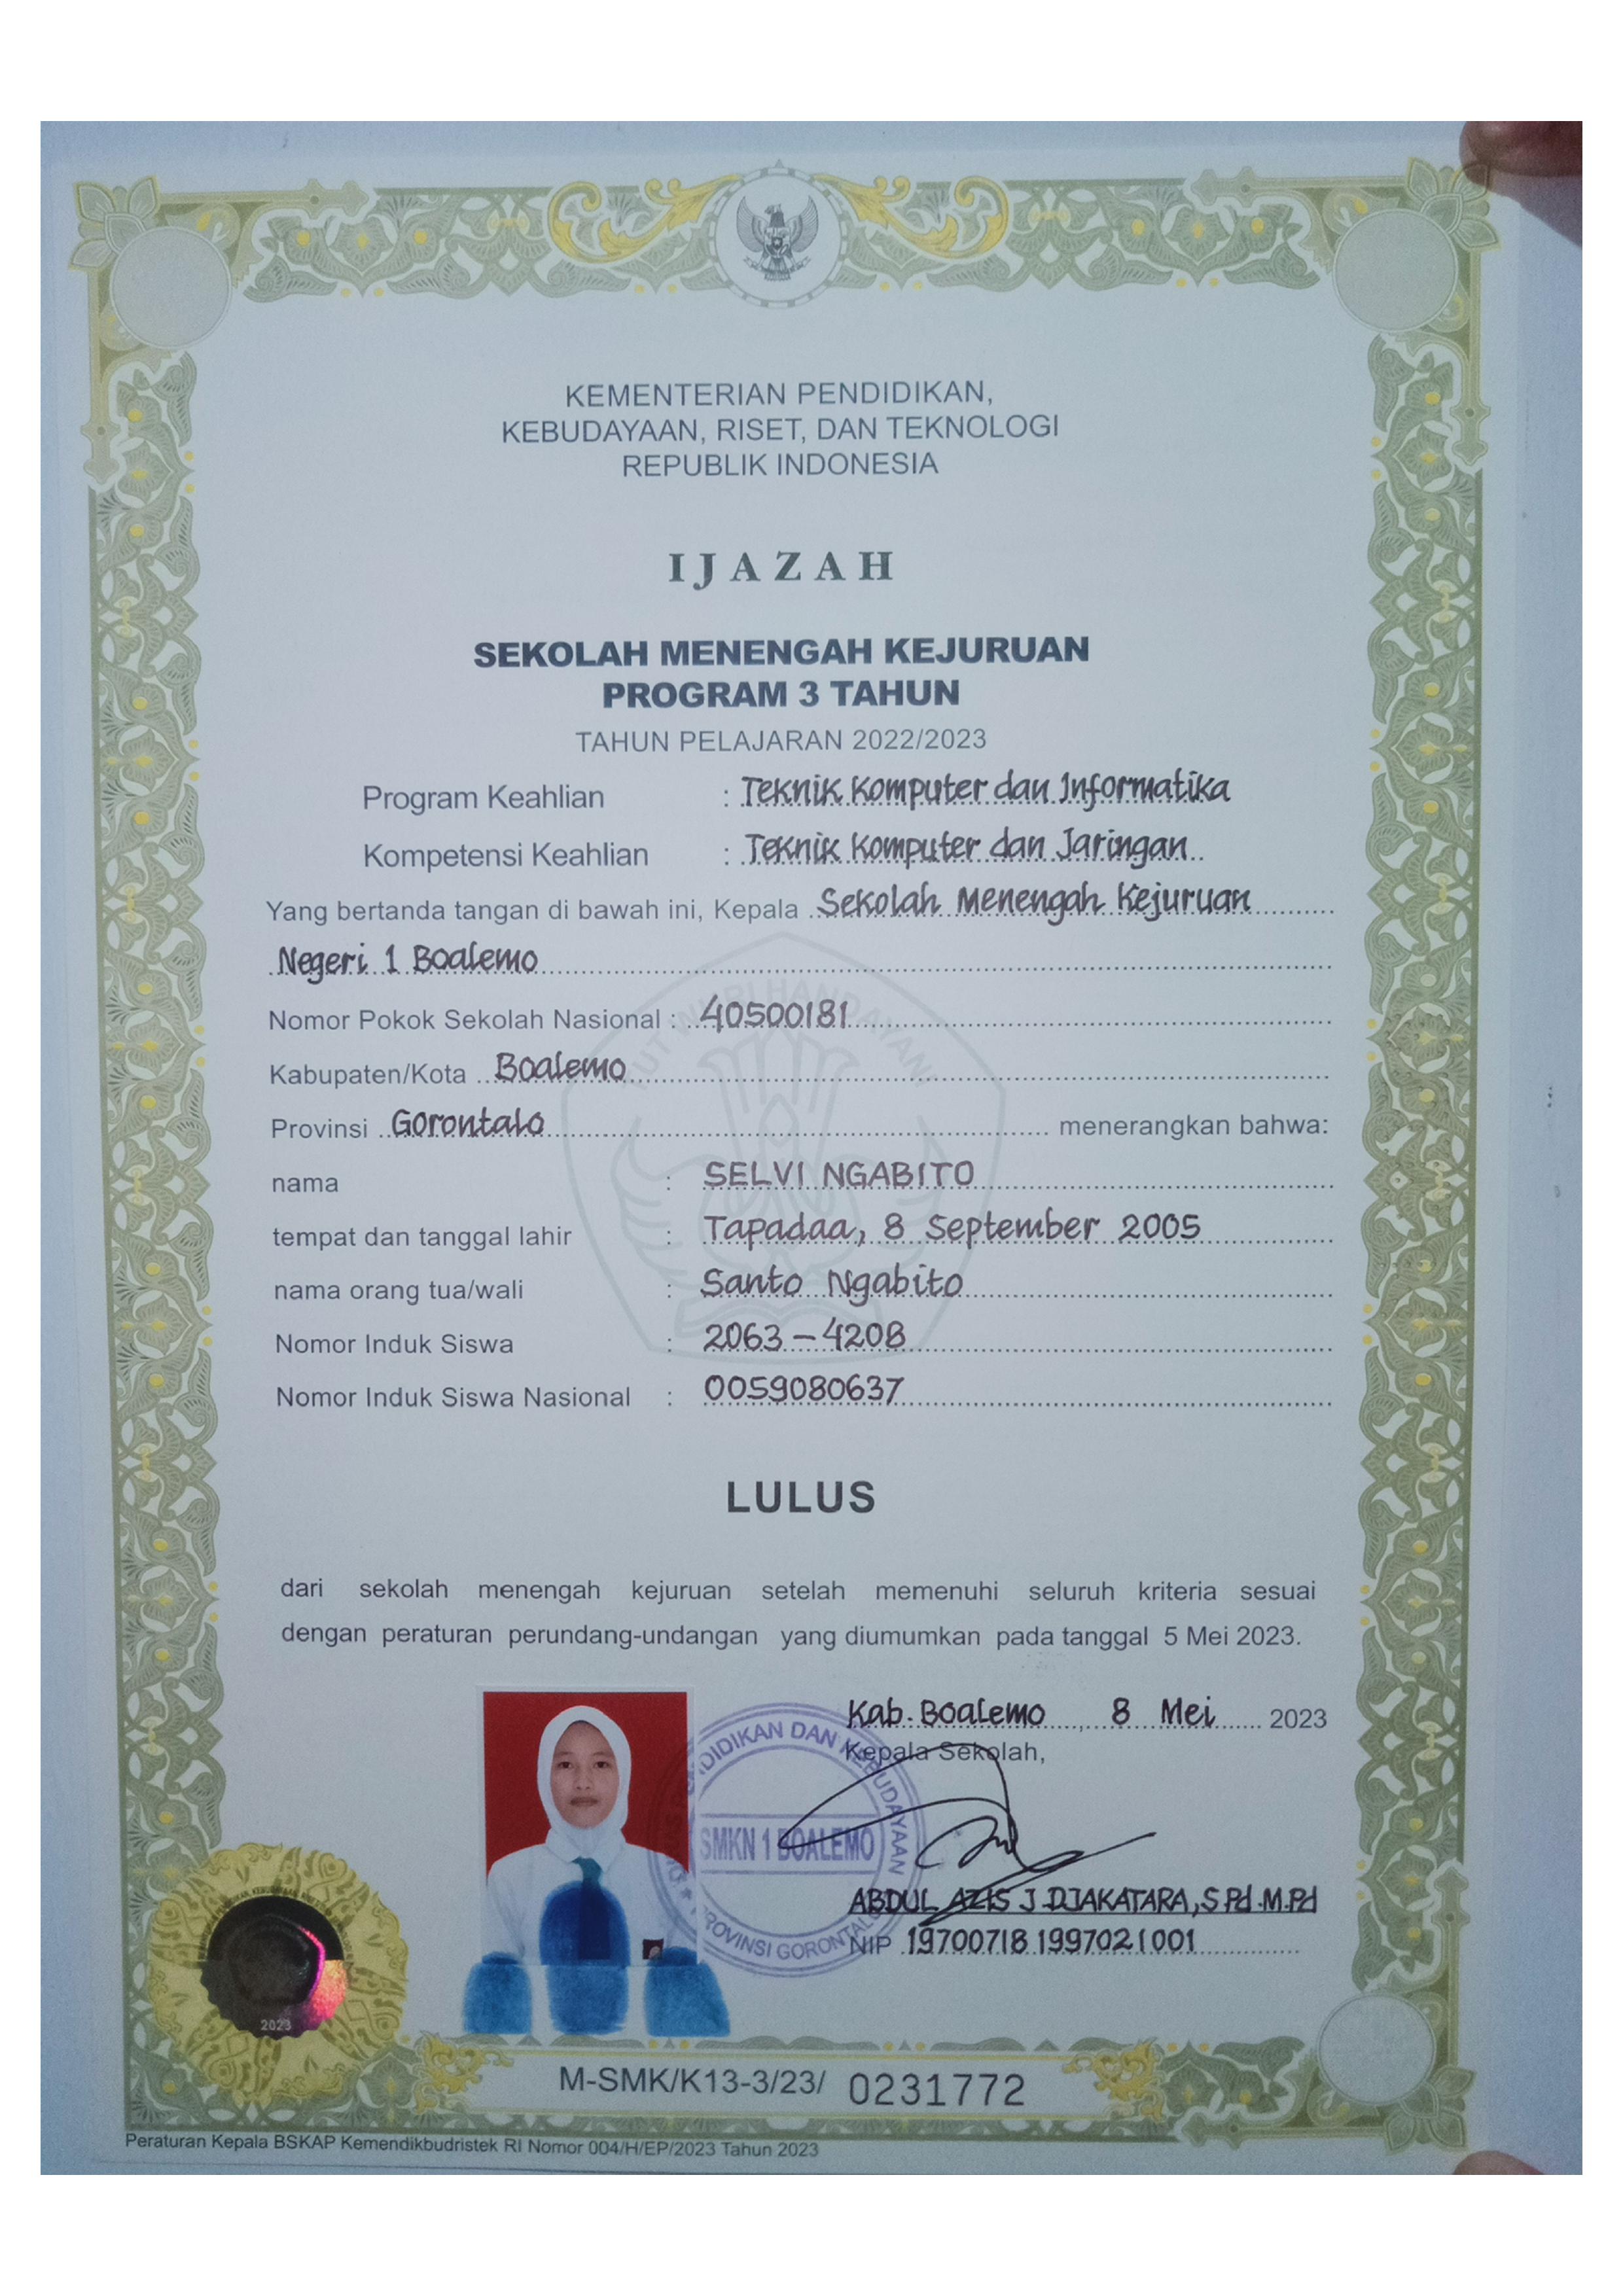 KEMENTERIAN PENDIDIKAN,
KEBUDAYAAN, RISET, DAN TEKNOLOGI
REPUBLIK INDONESIA
IJAZAH
SEKOLAH MENENGAH KEJURUAN
PROGRAM 3 TAHUN
TAHUN PELAJARAN 2022/2023
Program Keahlian : Teknik Komputer dan Informatika
Kompetensi Keahlian : Teknik Komputer dan Jaringan
Yang bertanda tangan di bawah ini, Kepala Sekolah Menengah Kejuruan
Negeri 1 Boalemo
Nomor Pokok Sekolah Nasional : 40500181
Kabupaten/Kota Boalemo
Provinsi Gorontalo menerangkan bahwa:
nama : SELVI NGABITO
tempat dan tanggal lahir : Tapadaa, 8 September 2005
nama orang tua/wali : Santo Ngabito
Nomor Induk Siswa : 2063 – 4208
Nomor Induk Siswa Nasional : 0059080637
TUT WURI HANDAYANI
LULUS
dari sekolah menengah kejuruan setelah memenuhi seluruh kriteria sesuai
dengan peraturan perundang-undangan yang diumumkan pada tanggal 5 Mei 2023.
Kab. Boalemo, 8 Mei 2023
Kepala Sekolah,
DIDIKAN DAN KEBUDAYAAN
SMKN 1 BOALEMO
PROVINSI GORONTALO
ABDUL AZIS J DJAKATARA, S.Pd.M.Pd
NIP 19700718 199702 1 001
2023
M-SMK/K13-3/23/ 0231772
Peraturan Kepala BSKAP Kemendikbudristek RI Nomor 004/H/EP/2023 Tahun 2023